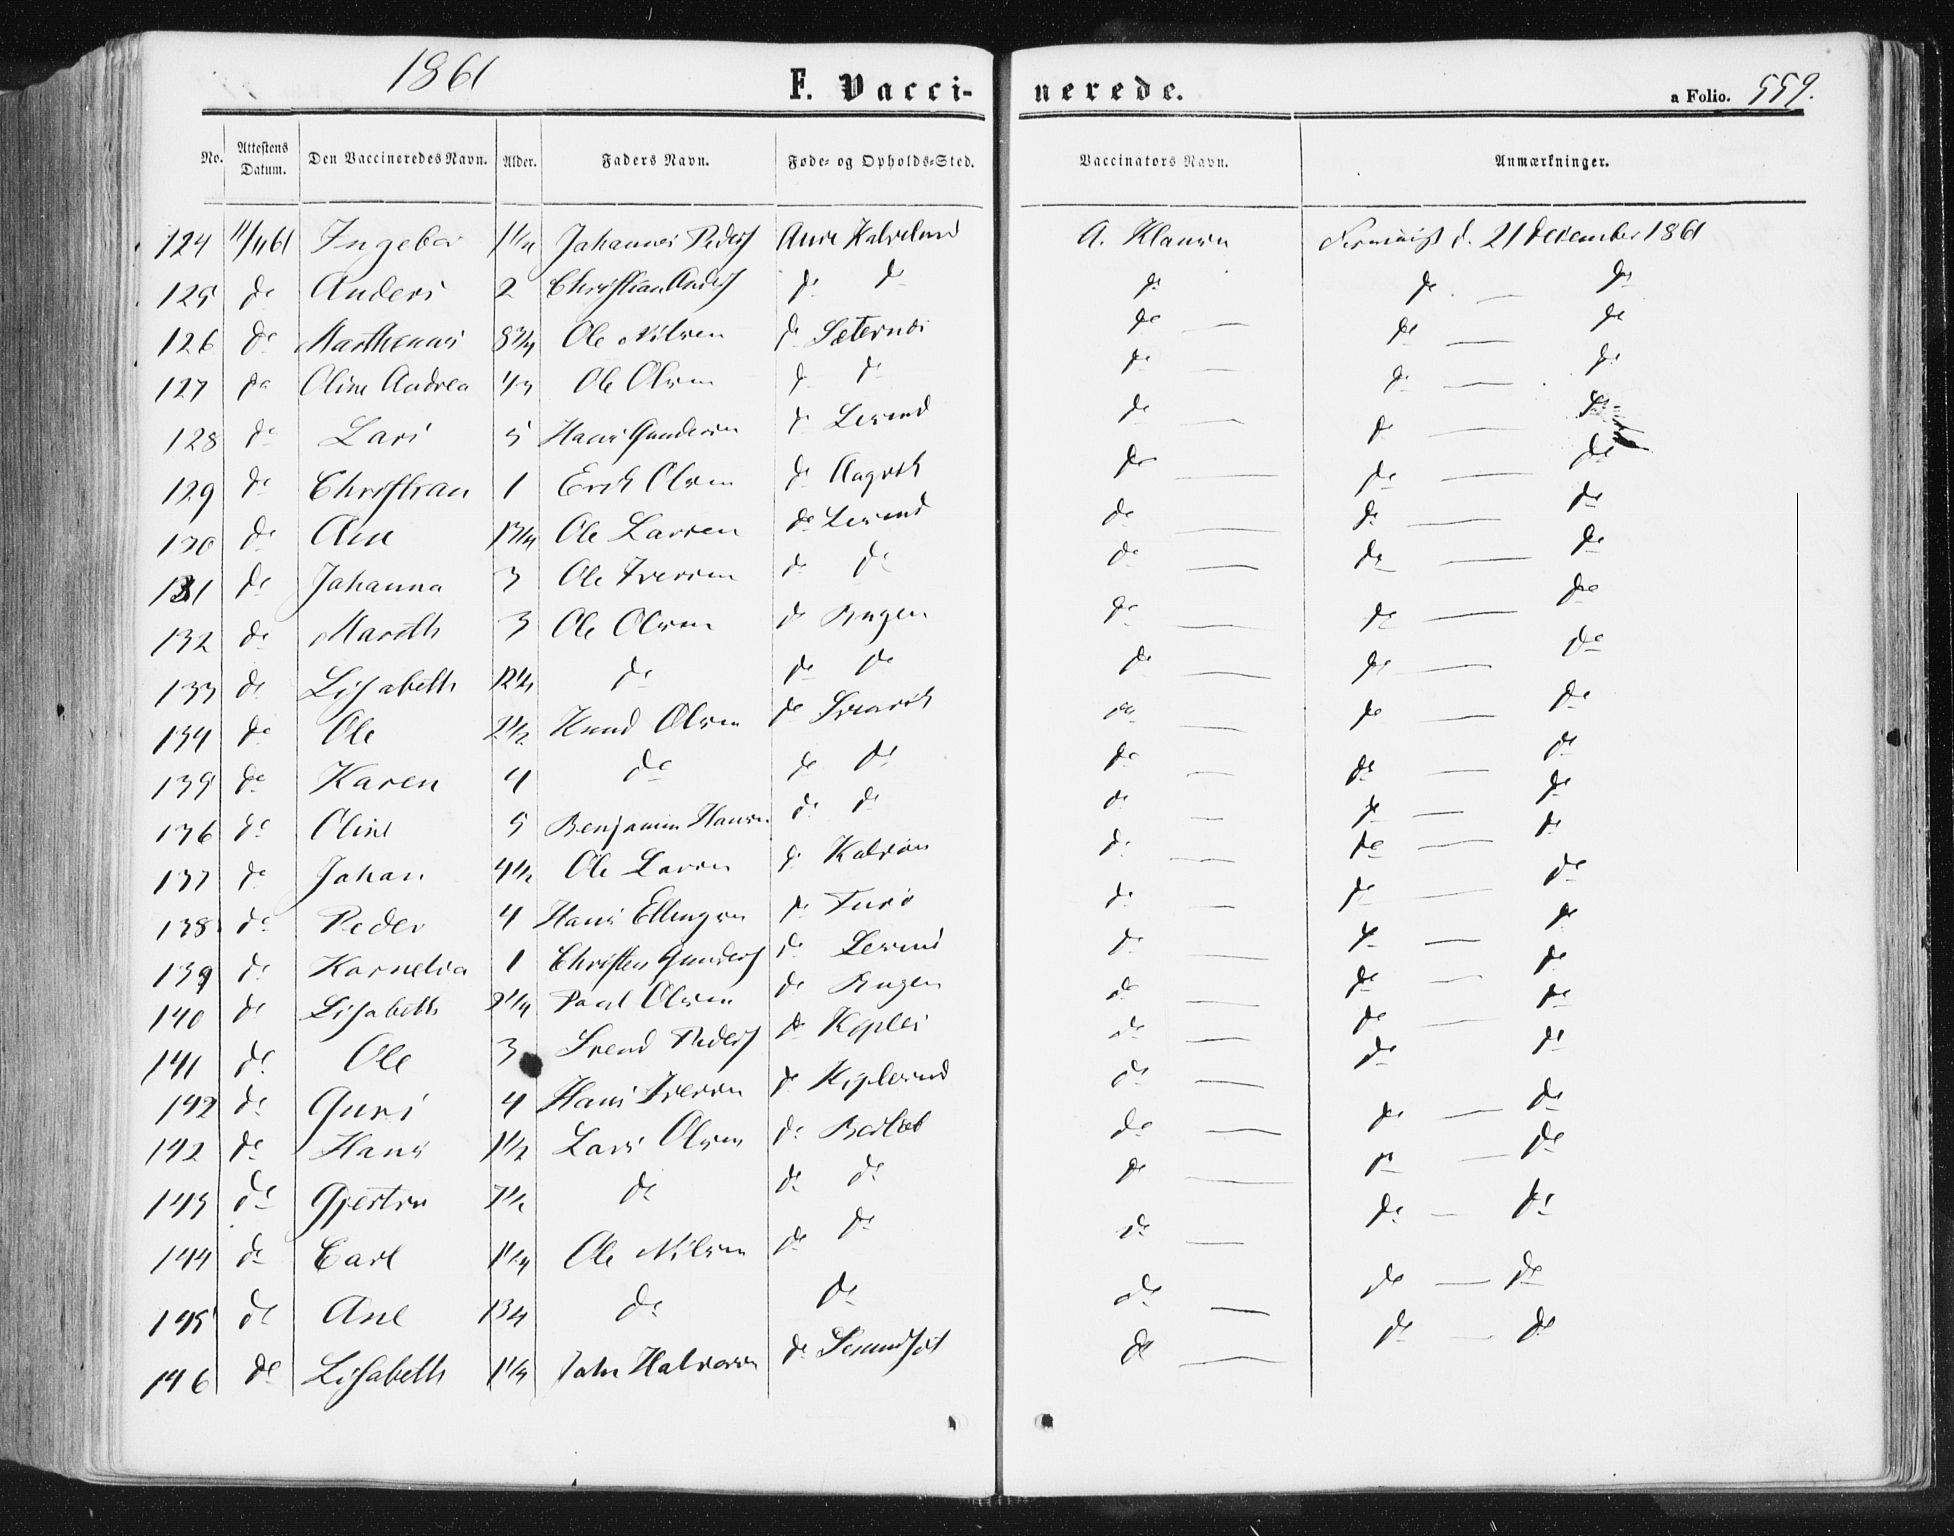 1861 F. Vacci- nerede. a Folio. 559.
No. Attestens Datum. Den Vaccineredes Navn. Alder. Faders Navn. Føde- og Opholds-Sted. Vaccinators Navn. Anmærkninger.
124 11/11 61 Ingebor 1 1/4 Johannes Peders Aure A. Klausen d. 21 December 1861
125 do Anders 2 Christian Anders do do do do — do
126 do 8 3/4 Ole Nilsen do do — do — do
127 do Oline Andrea Ole Olsen do do do — do — do
128 do Lars 5 Hans Gundersen do Lesund do — do — do
129 do Christian 1 Erik Olsen do Aagvik do — do — do
130 do Ane 1 3/4 Ole Larsen do Lesund do — do — do
131 do Johanna 3 Ole Iversen do do do — do — do
132 do Marith 3 Ole Olsen do do — do — do
133 do Lisabeth 12 1/2 do do do do — do — do
134 do Ole 2 1/2 Knud Olsen do do — do — do
135 do Karen 4 do do do do — do — do
136 do Oline 5 Benjamin Hansen do do do — do — do
137 do Johan 4 1/2 Ole Larsen do do — do — do
138 do Peder 4 Hans Ellingsen do do — do — do
139 do Kornelia 1 Christen Gunders do Lesund do — do — do
140 do Lisabeth 2 1/4 Paul Olsen do do — do — do
141 do Ole 3 Svend Peders do do — do — do
142 do Guri 4 Hans Iversen do do — do do
142 do Hans 1 1/2 Lars Olsen do do — do — do
143 do Gjertru 7 1/2 do do do do — do — do
144 do Carl 1 1/4 Ole Nilsen do do do — do — do
145 do Ane 13/4 do do do — do — do
146 do Lisabeth 1 1/4 John Halvorsen do do — do — do